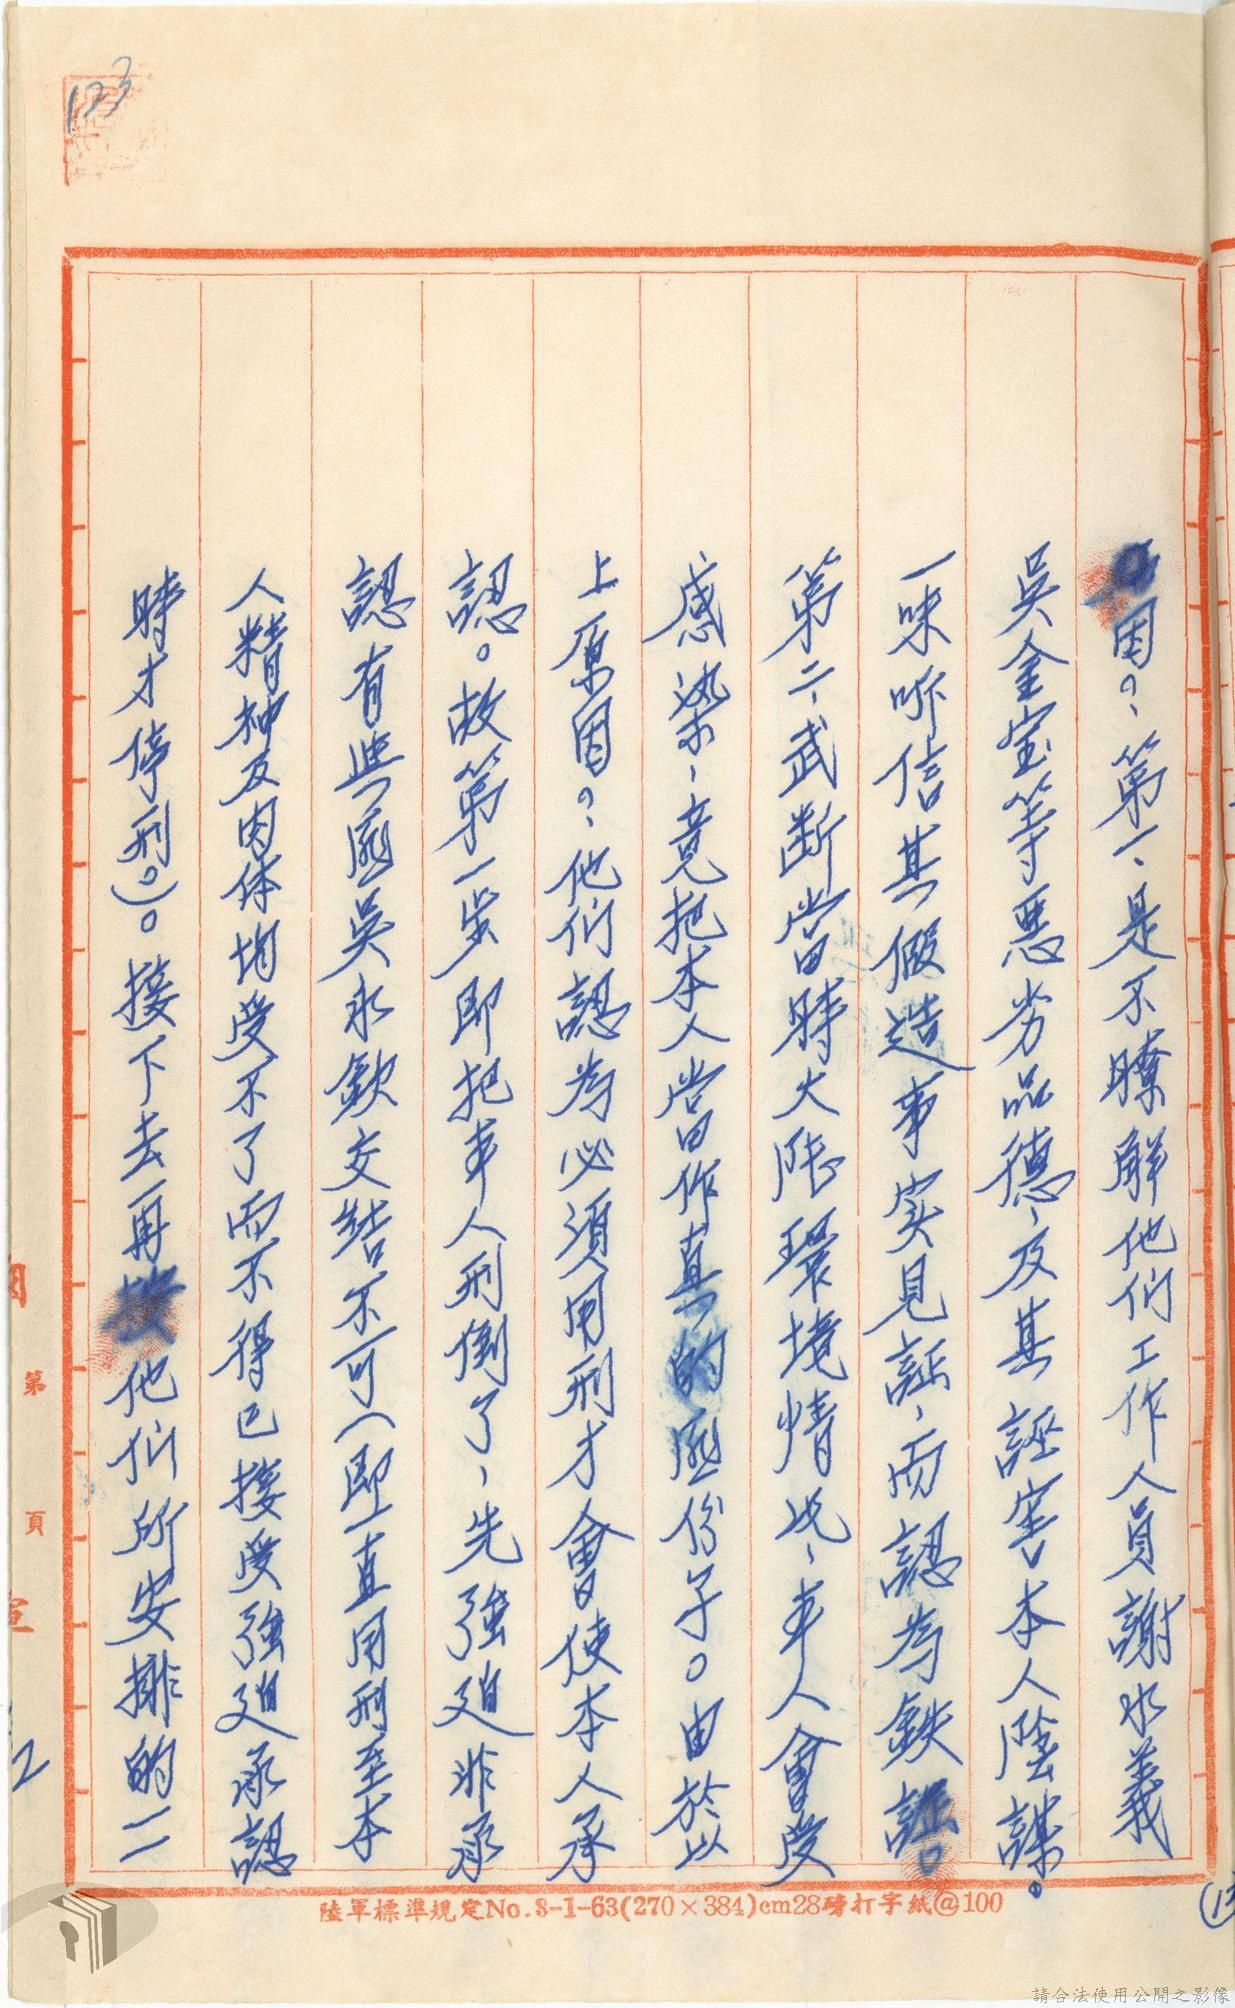 123
因?、第一、是不瞭解他們工作人員謝水義
吳金宝等惡劣品德、及其誣害本人陰謀。
一味听信其假造事实見証、而認为鉄証。
第二、武断當時大陸環境情形、本人會受
感染、竟把本人當作真的匪份子。由於以
上原因?、他們認为必須用刑才會使本人承
認。故第一步即把本人刑倒了、先強迫非承
認有與匪吳永欽交結不可(即一直用刑至本
人精神及肉体均受不了而不得已接受強迫承認
時才停刑。)。接下去再按他們所安排的二
第 頁
陸軍標準規定No.3-1-63(270×384)cm28磅打字紙@100
請合法使用公開之影像